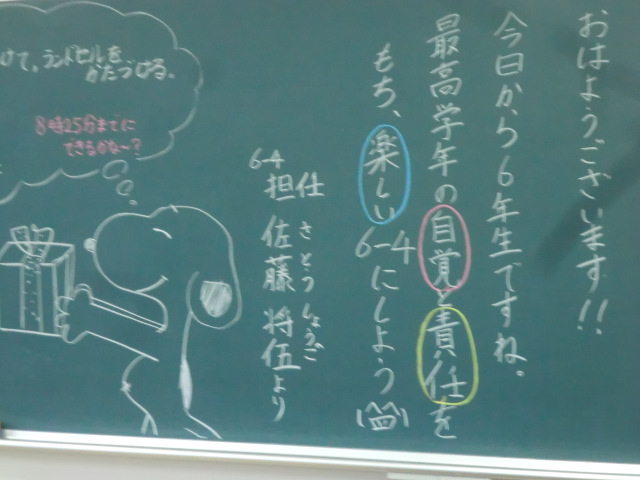 おはようございます!!
今日から6年生ですね。
最高学年の自覚と責任を
もち、楽しい6-4にしよう(^^)
6-4
担任 佐藤 将伍より
さとう しょうご
けて、ランドセルを
かたづける。
8時25分までに
できるかな〜?